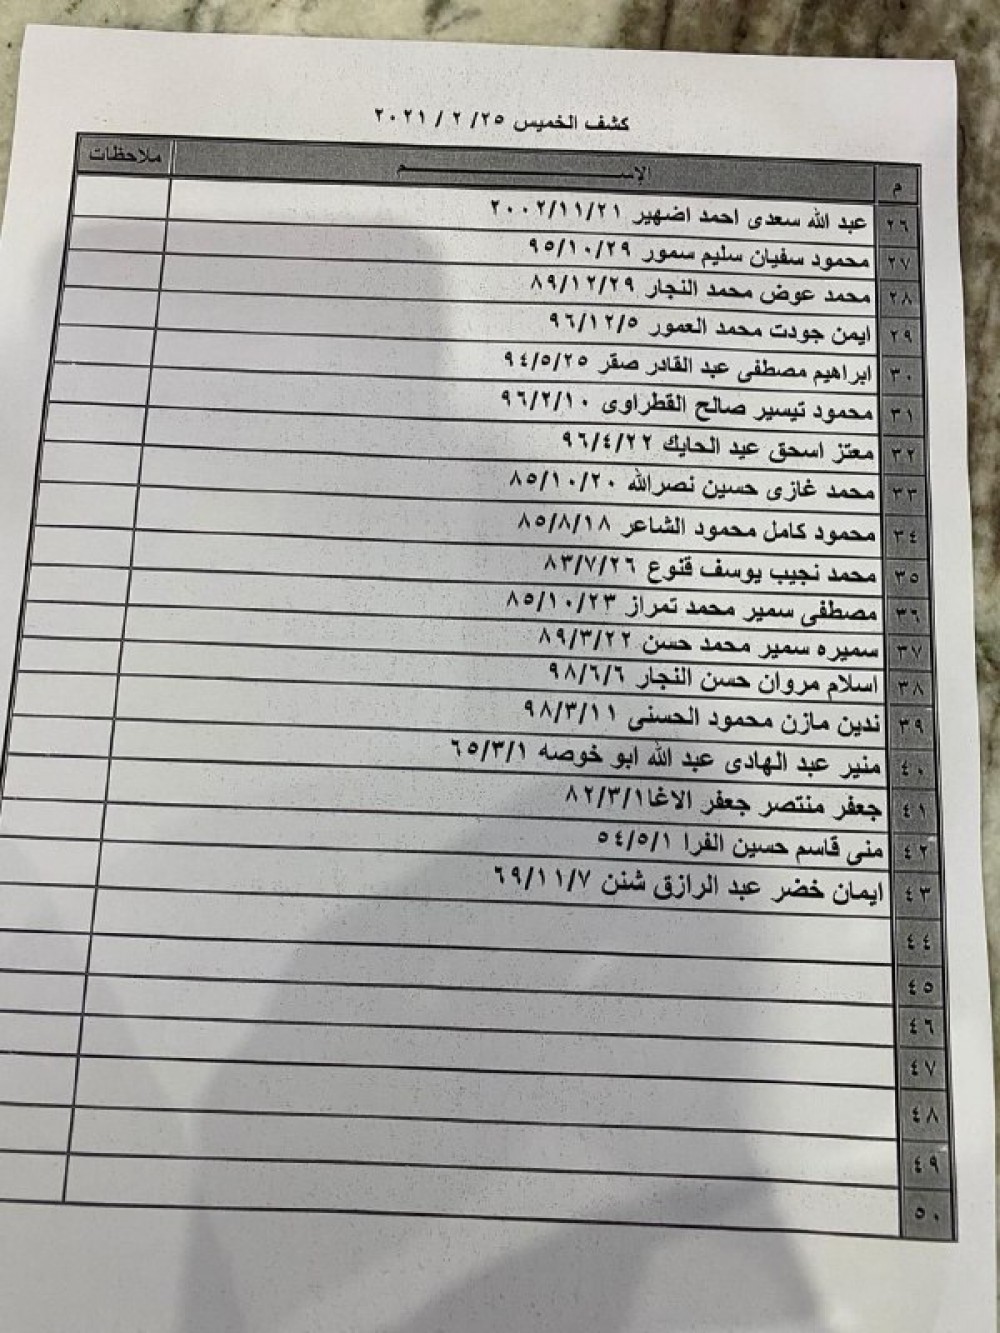 كشف الخميس ٢٥/ ٢ / ٢٠٢١
م الإســـــــــــــــــم ملاحظات
٢٦ عبد الله سعدى احمد اضهير ٢٠٠٢/١١/٢١
٢٧ محمود سفيان سليم سمور ٩٥/١٠/٢٩
٢٨ محمد عوض محمد النجار ٨٩/١٢/٢٩
٢٩ ايمن جودت محمد العمور ٩٦/١٢/٥
٣٠ ابراهيم مصطفى عبد القادر صقر ٩٤/٥/٢٥
٣١ محمود تيسير صالح القطراوى ٩٦/٢/١٠
٣٢ معتز اسحق عيد الحايك ٩٦/٤/٢٢
٣٣ محمد غازى حسين نصرالله ٨٥/١٠/٢٠
٣٤ محمود كامل محمود الشاعر ٨٥/٨/١٨
٣٥ محمد نجيب يوسف قنوع ٨٣/٧/٢٦
٣٦ مصطفى سمير محمد تمراز ٨٥/١٠/٢٣
٣٧ سميره سمير محمد حسن ٨٩/٣/٢٢
٣٨ اسلام مروان حسن النجار ٩٨/٦/٦
٣٩ ندين مازن محمود الحسنى ٩٨/٣/١١
٤٠ منير عبد الهادى عبد الله ابو خوصه ٦٥/٣/١
٤١ جعفر منتصر جعفر الاغا٨٢/٣/١
٤٢ منى قاسم حسين الفرا ٥٤/٥/١
٤٣ ايمان خضر عبد الرازق شنن ٦٩/١١/٧
٤٤
٤٥
٤٦
٤٧
٤٨
٤٩
٥٠